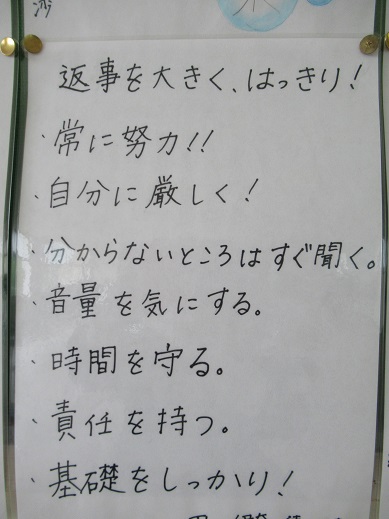 返事を大きく、はっきり!
・常に努力!!
・自分に厳しく!
・分からないところはすぐ聞く。
・音量を気にする。
・時間を守る。
・責任を持つ。
・基礎をしっかり!